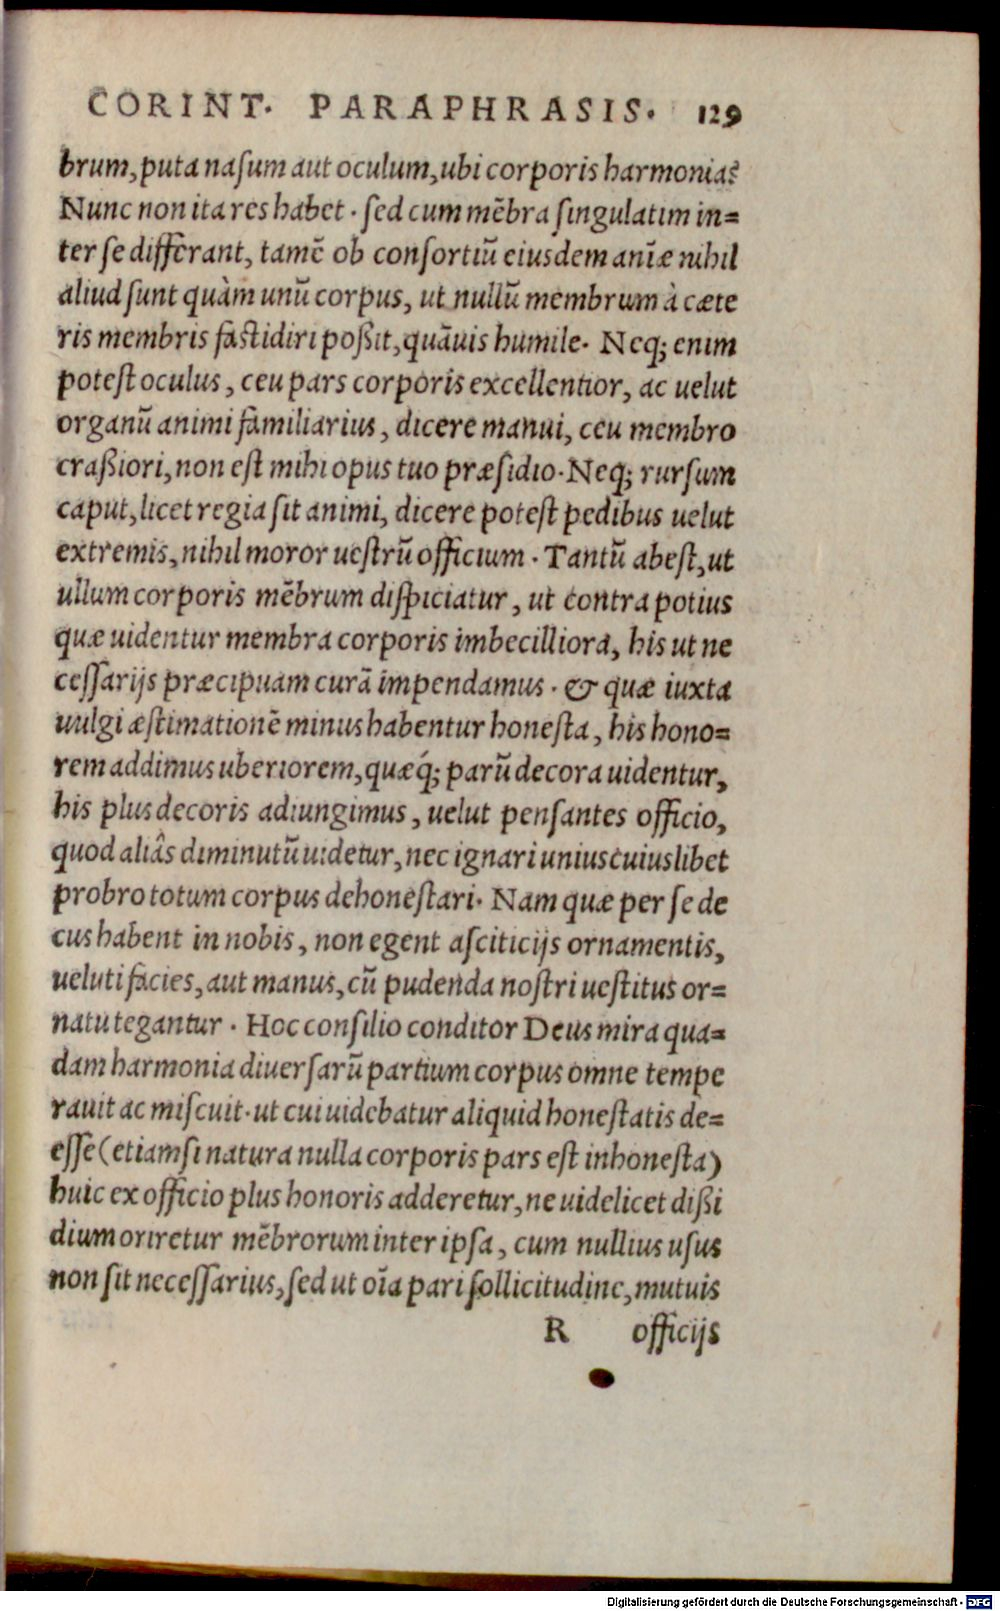 CORINT. PARAPHRASIS. 129
brum, puta naſum aut oculum, ubi corporis harmonia?
Nunc non ita res habet. ſed cum mẽbra ſingulatim in=
ter ſe differant, tamẽ ob conſortiũ eiusdem anĩæ nihil
aliud ſunt quàm unũ corpus, ut nullũ membrum à cæte
ris membris faſtidiri poßit, quãuis humile. Neq; enim
poteſt oculus, ceu pars corporis excellentior, ac uelut
organũ animi familiarius, dicere manui, ceu membro
craßiori, non eſt mihi opus tuo præſidio. Neq; rurſum
caput, licet regia ſit animi, dicere poteſt pedibus uelut
extremis, nihil moror ueſtrũ officium. Tantũ abeſt, ut
ullum corporis mẽbrum diſpiciatur, ut contra potius
quæ uidentur membra corporis imbecilliora, his ut ne
ceſſarijs præcipuam curã impendamus. & quæ iuxta
uulgi æſtimationẽ minus habentur honeſta, his hono=
rem addimus uberiorem, quæq́; parũ decora uidentur,
his plus decoris adiungimus, uelut penſantes officio,
quod aliâs diminutũ uidetur, nec ignari uniuscuiuslibet
probro totum corpus dehoneſtari. Nam quæ per ſe de
cus habent in nobis, non egent aſciticijs ornamentis,
ueluti facies, aut manus, cũ pudenda noſtri ueſtitus or=
natu tegantur. Hoc conſilio conditor Deus mira qua=
dam harmonia diuerſarũ partium corpus omne tempe
rauit ac miſcuit. ut cui uidebatur aliquid honeſtatis de=
eſſe (etiamſi natura nulla corporis pars eſt inhoneſta)
huic ex officio plus honoris adderetur, ne uidelicet dißi
dium oriretur mẽbrorum inter ipſa, cum nullius uſus
non ſit neceſſarius, ſed ut oĩa pari ſollicitudine, mutuis
R officijs
Digitalisierung gefördert durch die Deutsche Forschungsgemeinschaft - DFG